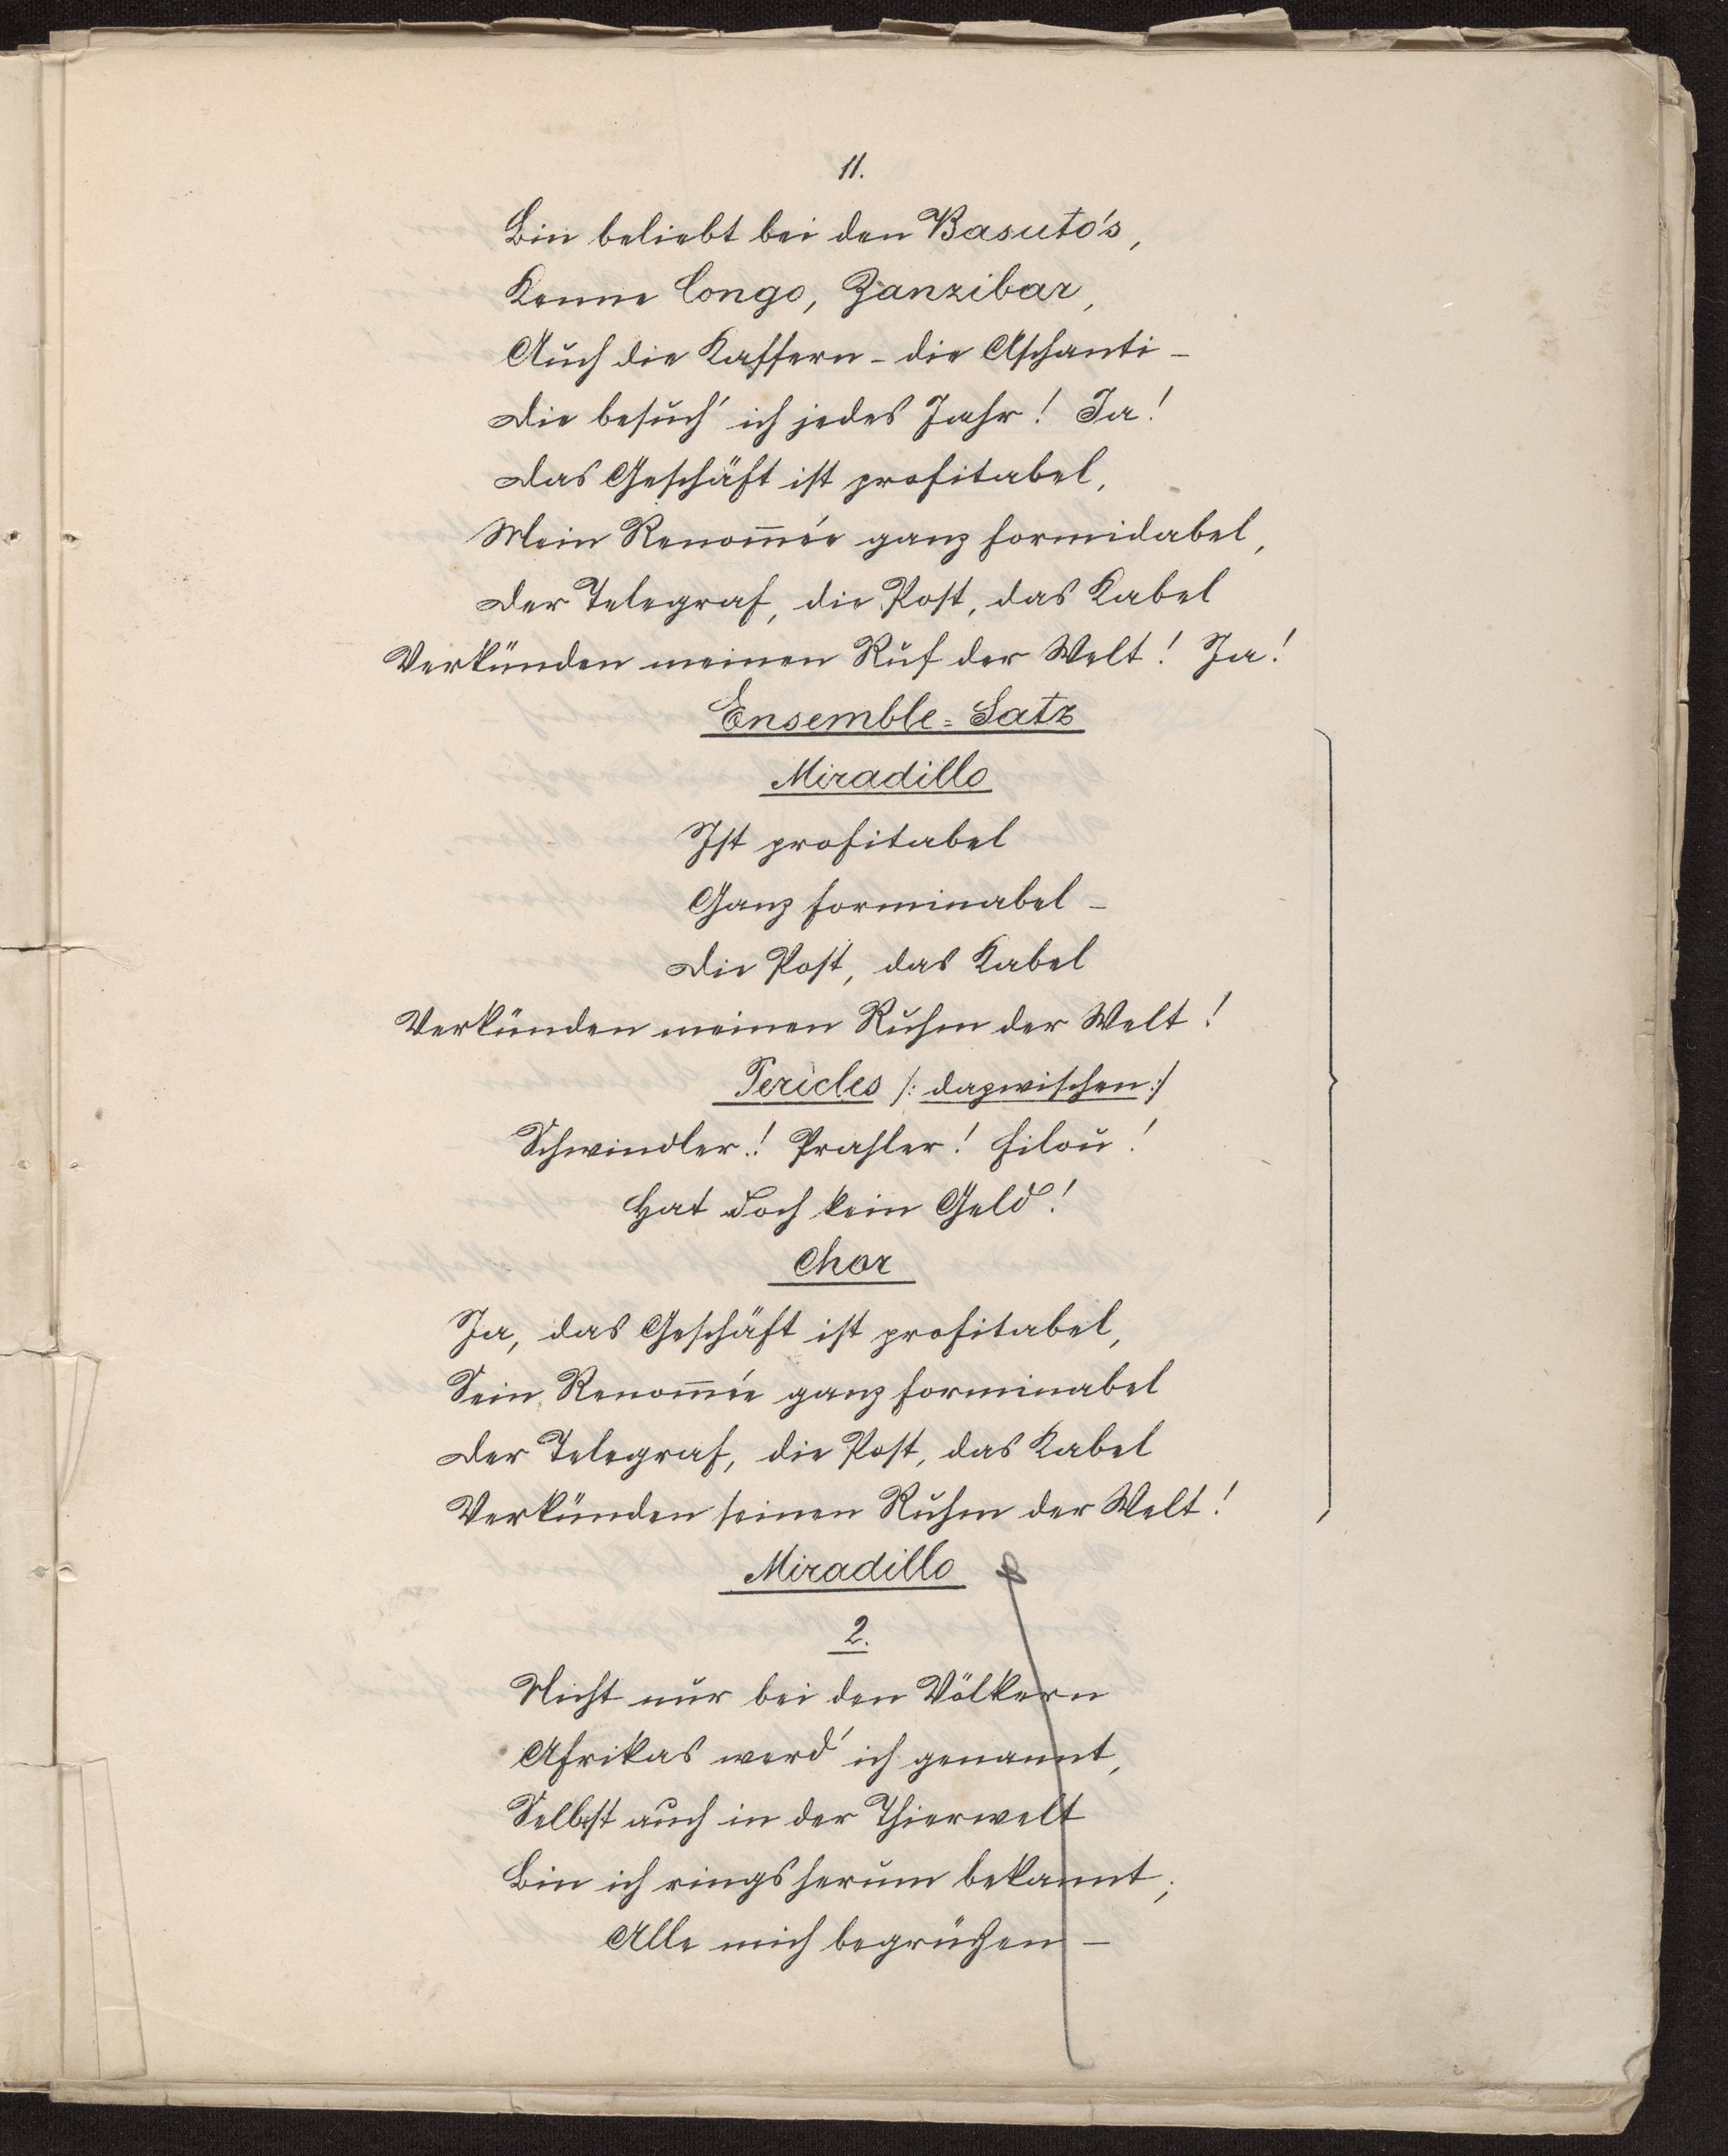 11.
Bin beliebt bei den Basuto's,
Kenne Congo, Zanzibar,
Auch die Kaffern - die Aschanti -
Die besuch' ich jedes Jahr! Ja!
Das Geschäft ist profitabel,
Mein Renom̅ée ganz formidabel,
Der Telegraf, die Post, das Kabel
Verkünden meinen Ruf der Welt! Ja!
Ensemble=Satz
Miradillo
Ist profitabel
Ganz forminabel -
Die Post, das Kabel
Verkünden meinen Ruhm der Welt!
Pericles /: dazwischen :/
Schwindler! Prahler! Filou!
Hat doch kein Geld!
Chor
Ja, das Geschäft ist profitabel,
Sein Renom̅ée ganz forminabel
Der Telegraf, die Post, das Kabel
Verkünden seinen Ruhm der Welt!
Miradillo
2.
Nicht nur bei den Völkern
Afrikas werd' ich genannt,
Selbst auch in der Thierwelt
Bin ich ringsherum bekannt;
Alle mich begrüßen -